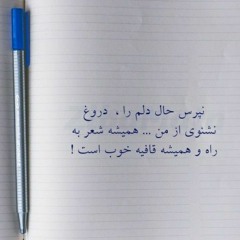 نپرس حال دلم را ، دروغ
نشنوی از من ... همیشه شعر به
راه و همیشه قافیه خوب است !